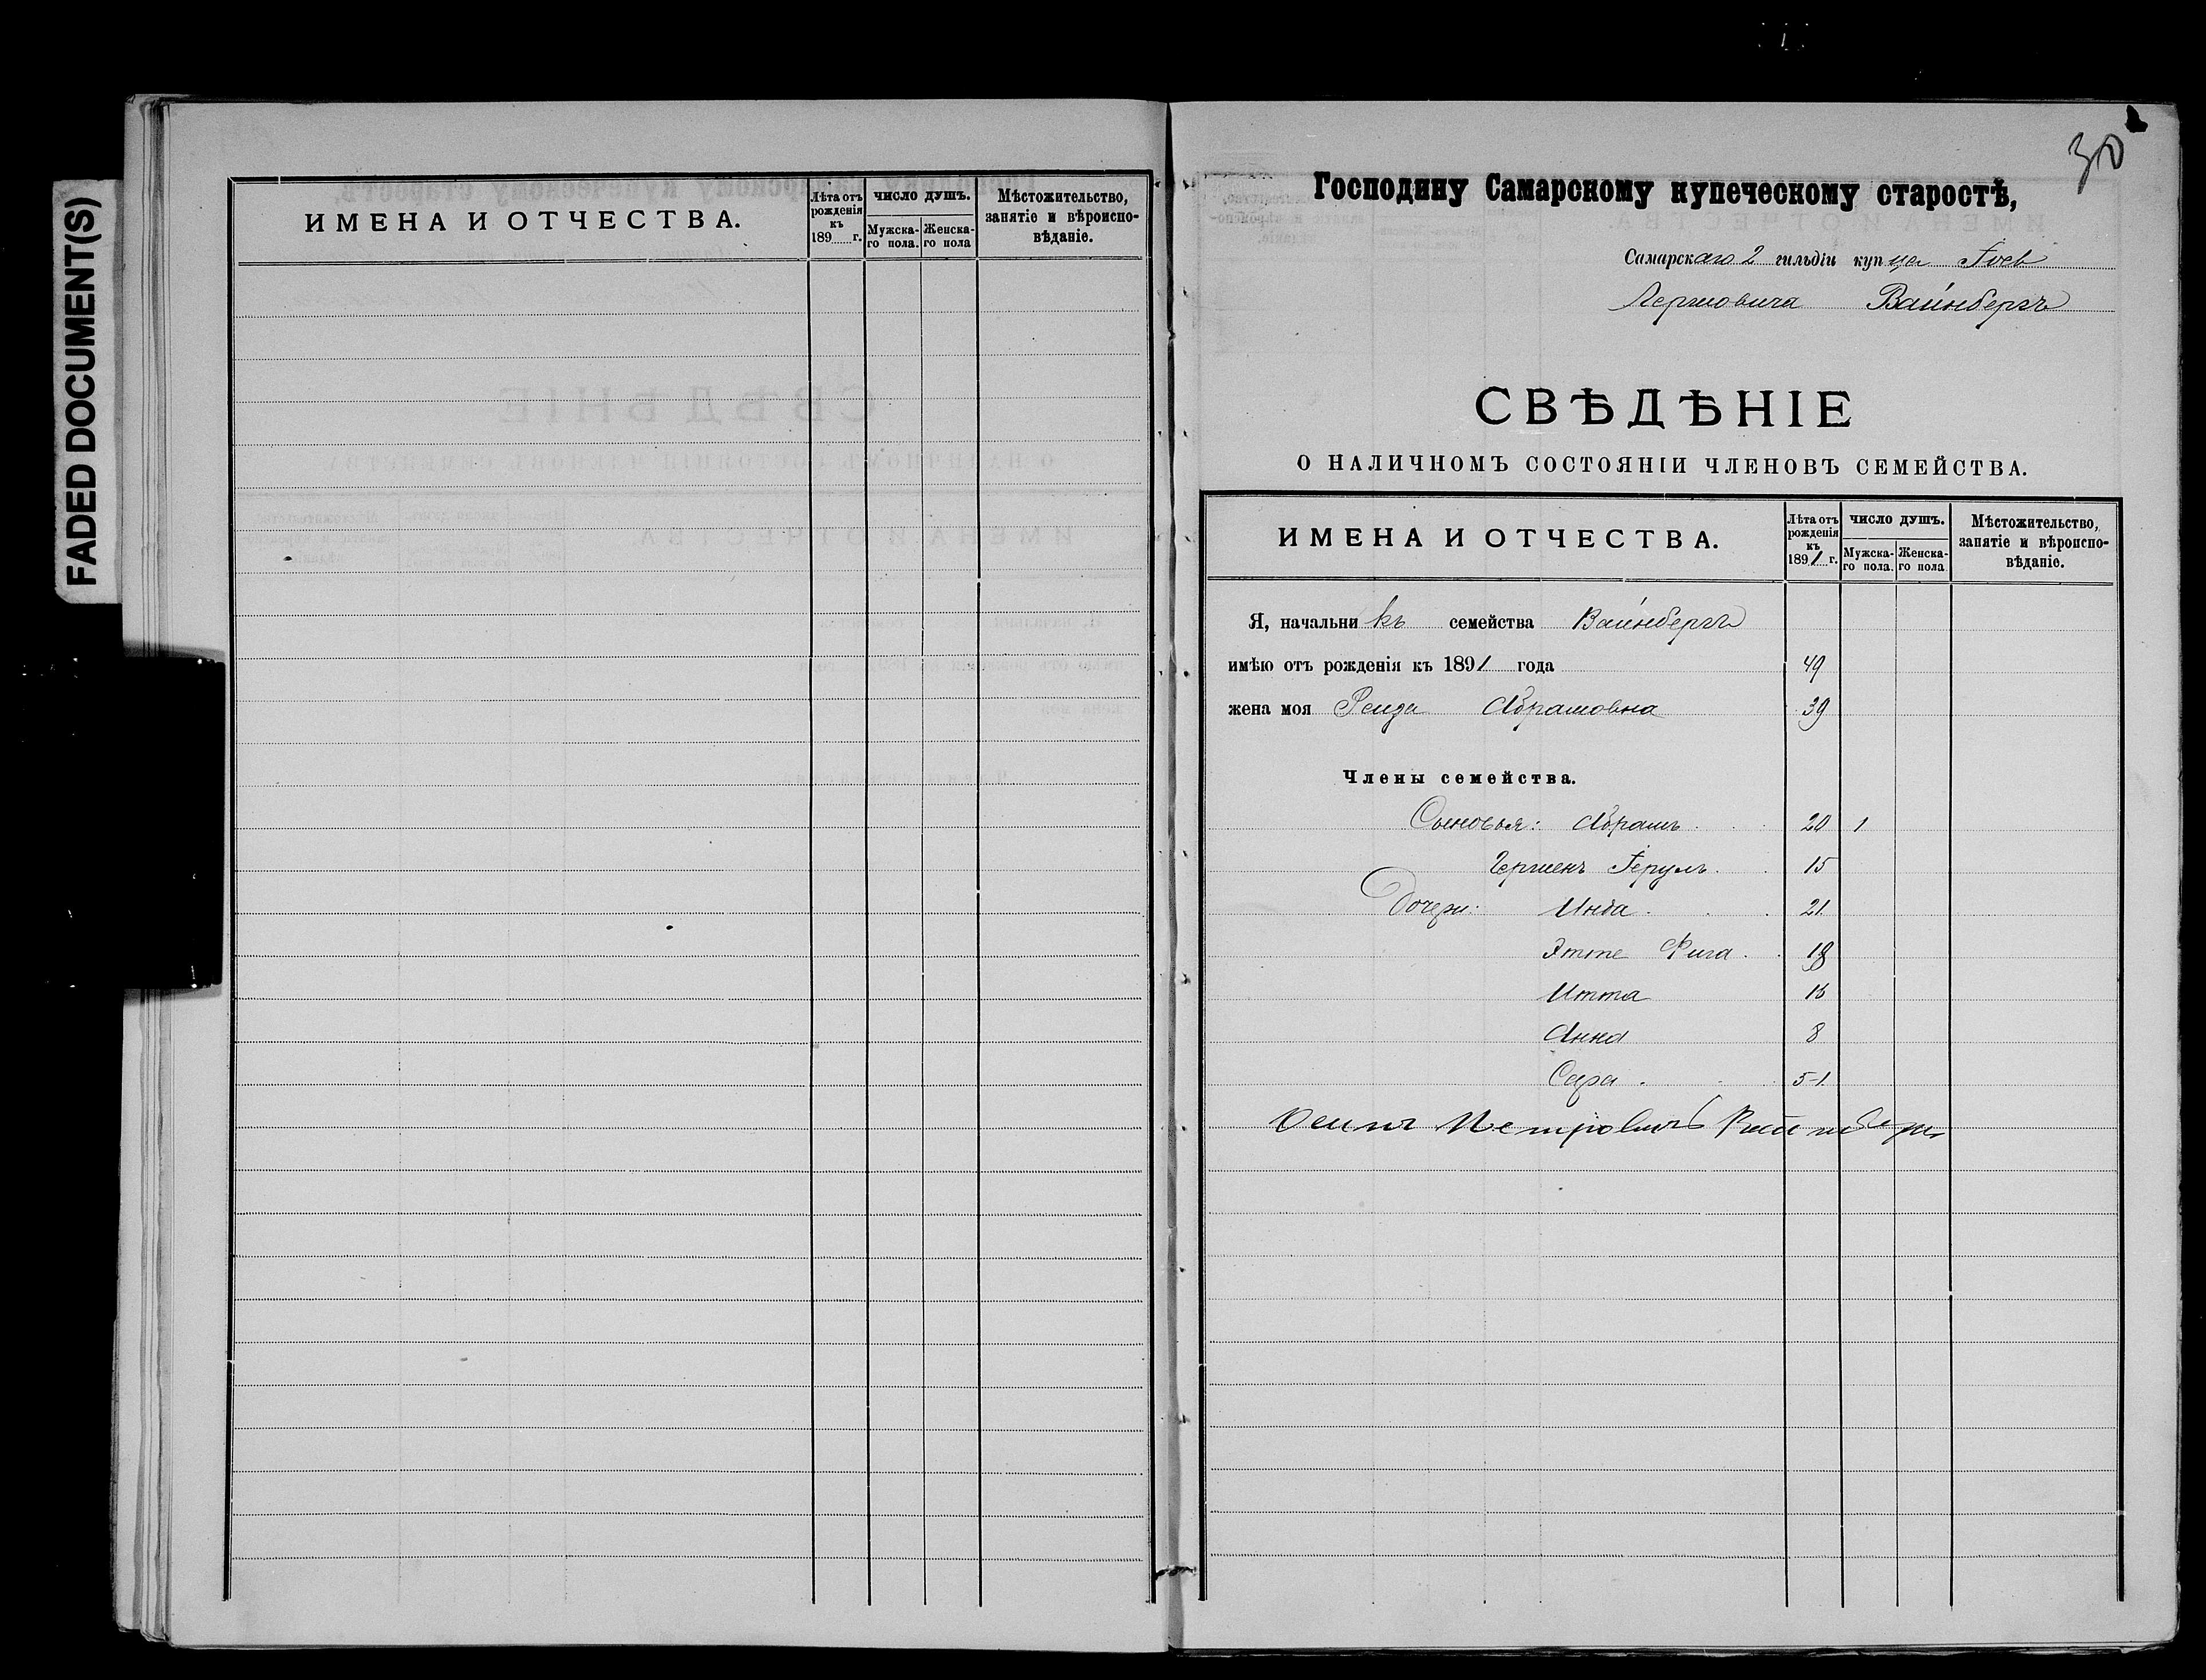 FADED DOCUMENT(S)
ИМЕНА И ОТЧЕСТВА.
Лѣта отъ рожденія къ 189 г.
ЧИСЛО ДУШЪ.
Мужска-го пола.
Женска-го пола
Мѣстожительство, занятіе и вѣроиспо-вѣданіе.
30
Господину Самарскому купеческому старостѣ,
Самарскаго 2 гильдіи купца
Вайнбергъ
СВѢДѢНІЕ
О НАЛИЧНОМЪ СОСТОЯНІИ ЧЛЕНОВЪ СЕМЕЙСТВА.
ИМЕНА И ОТЧЕСТВА.
Лѣта отъ рожденія къ 1891 г.
ЧИСЛО ДУШЪ.
Мужска-го пола.
Женска-го пола
Мѣстожительство, занятіе и вѣроиспо-вѣданіе.
Я, начальникъ семейства Вайнбергъ
имѣю отъ рожденія къ 1891 года 49
жена моя Абрамовна 39
Члены семейства.
Сыновья: Абрамъ 20 1
15
Дочери: 21
Этте 18
Итта
Анна 8
Сара 5-1
Осипъ Петровичъ Вайнбергъ